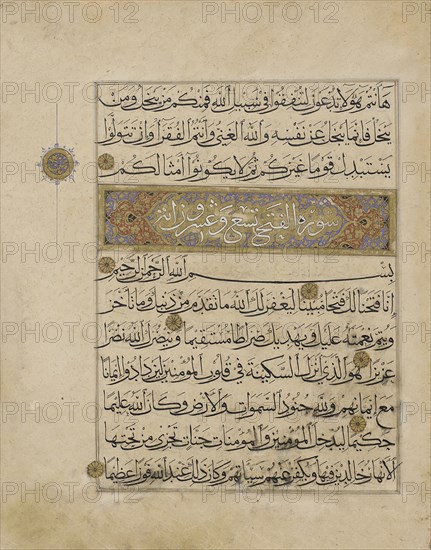 هأنتم هولا تدعون لتنفقوا في سبيل الله فمنكم من يبخل ومن
يبخل فإنما يبخل عن نفسه والله الغني وأنتم الفقرا وإن تتولوا
يستبدل قوما غيركم ثم لا يكونوا أمثالكم
سورة الفتح تسع وعشرون آية
بسم الله الرحمن الرحيم
إنا فتحنا لك فتحا مبينا ليغفر لك الله ما تقدم من ذنبك وما تأخر
ويتم نعمته عليك ويهديك صراطا مستقيما وينصرك الله نصرا
عزيزا هو الذي أنزل السكينة في قلوب المؤمنين ليزدادوا إيمانا
مع إيمانهم ولله جنود السموات والأرض وكان الله عليما
حكيما ليدخل المؤمنين والمؤمنات جنات تجري من تحتها
الأنهار خالدين فيها ويكفر عنهم سيئاتهم وكان ذلك عند الله فوزا عظيما
PHOTO12